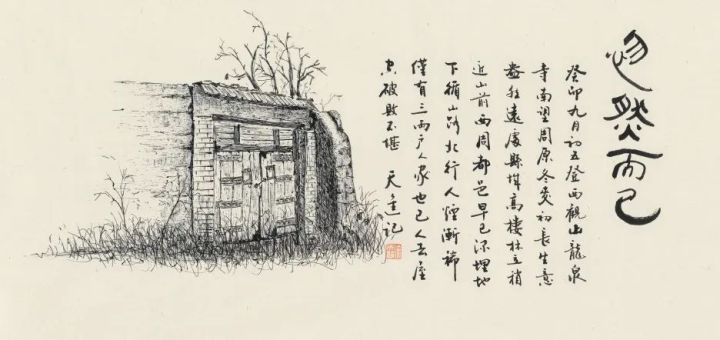 忽然而已
癸卯九月初五登西觀山龍泉
寺南望周原冬麥初長生意
盎然遠處縣城高樓林立稍
近山前西周都邑早已深埋地
下循山路北行人煙漸稀
僅有三兩戶人家也已人去屋
空破敗不堪 天记